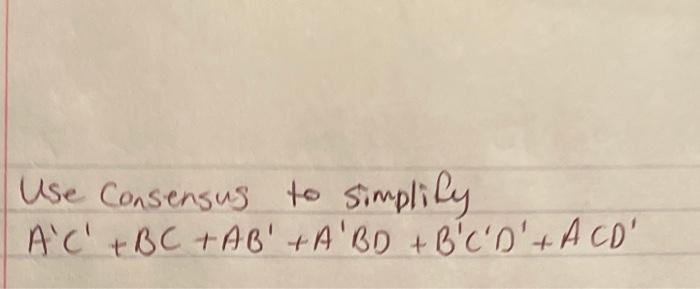 Use Consensus to simplify
A'C' + BC + AB' + A'BD + B'C'D' + ACD'